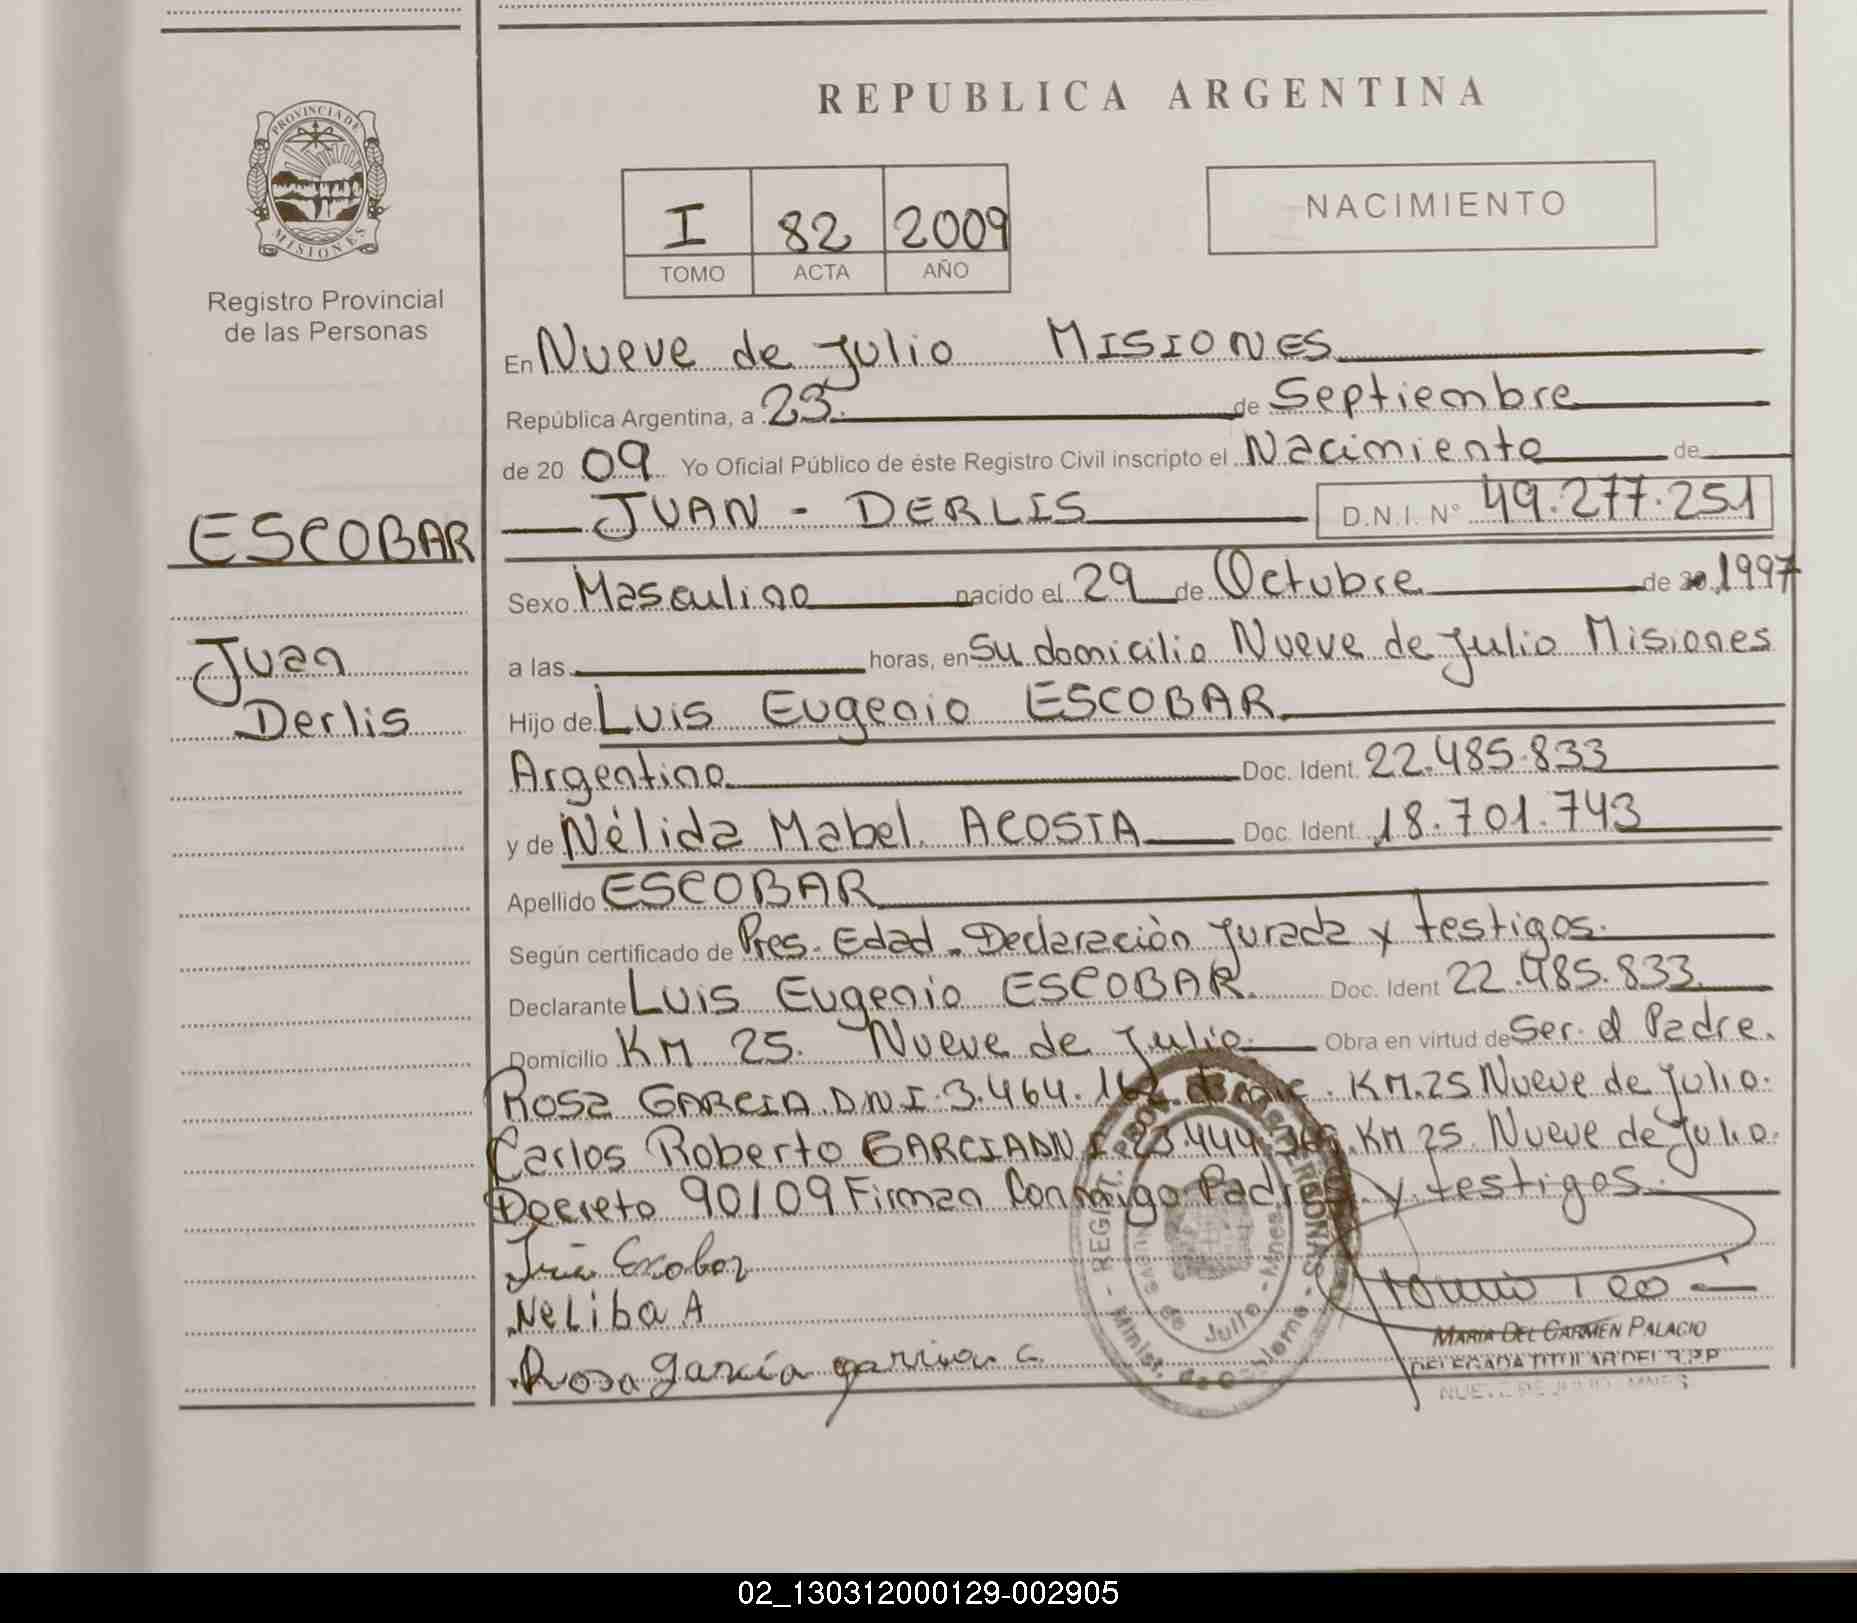 REPUBLICA ARGENTINA
PROVINCIA DE
MISIONES
Registro Provincial
de las Personas
I 82 2009
TOMO ACTA AÑO
NACIMIENTO
En Nueve de Julio MISIONES
República Argentina, a 23 de Septiembre
de 20 09 Yo Oficial Público de éste Registro Civil inscripto el Nacimiento de
ESCOBAR
JUAN - DERLIS D.N.I. N° 49.277.251
Sexo Masculino nacido el 29 de Octubre de 1997
Juan
Derlis
a las horas, en Su domicilio Nueve de Julio Misiones
Hijo de Luis Eugenio ESCOBAR
Argentino Doc. Ident. 22.485.833
y de Nélida Mabel ACOSTA Doc. Ident. 18.701.743
Apellido ESCOBAR
Según certificado de Pres. Edad - Declaración Jurada y testigos.
Declarante Luis Eugenio ESCOBAR. Doc. Ident 22.485.833
Domicilio KM 25. Nueve de Julio Obra en virtud de Ser el Padre.
Rosa GARCIA DNI. 3.464. KM.25 Nueve de Julio.
Carlos Roberto GARCIA DNI 23.444. KM 25. Nueve de Julio.
Decreto 90/09 Firman Conmigo y testigos.
Escobar
NeLiba A
Rosa garcía
MARIA DEL CARMEN PALACIO
DELEGADA TITULAR DEL R.P.P
NUEVE DE JULIO - MNES
02_130312000129-002905